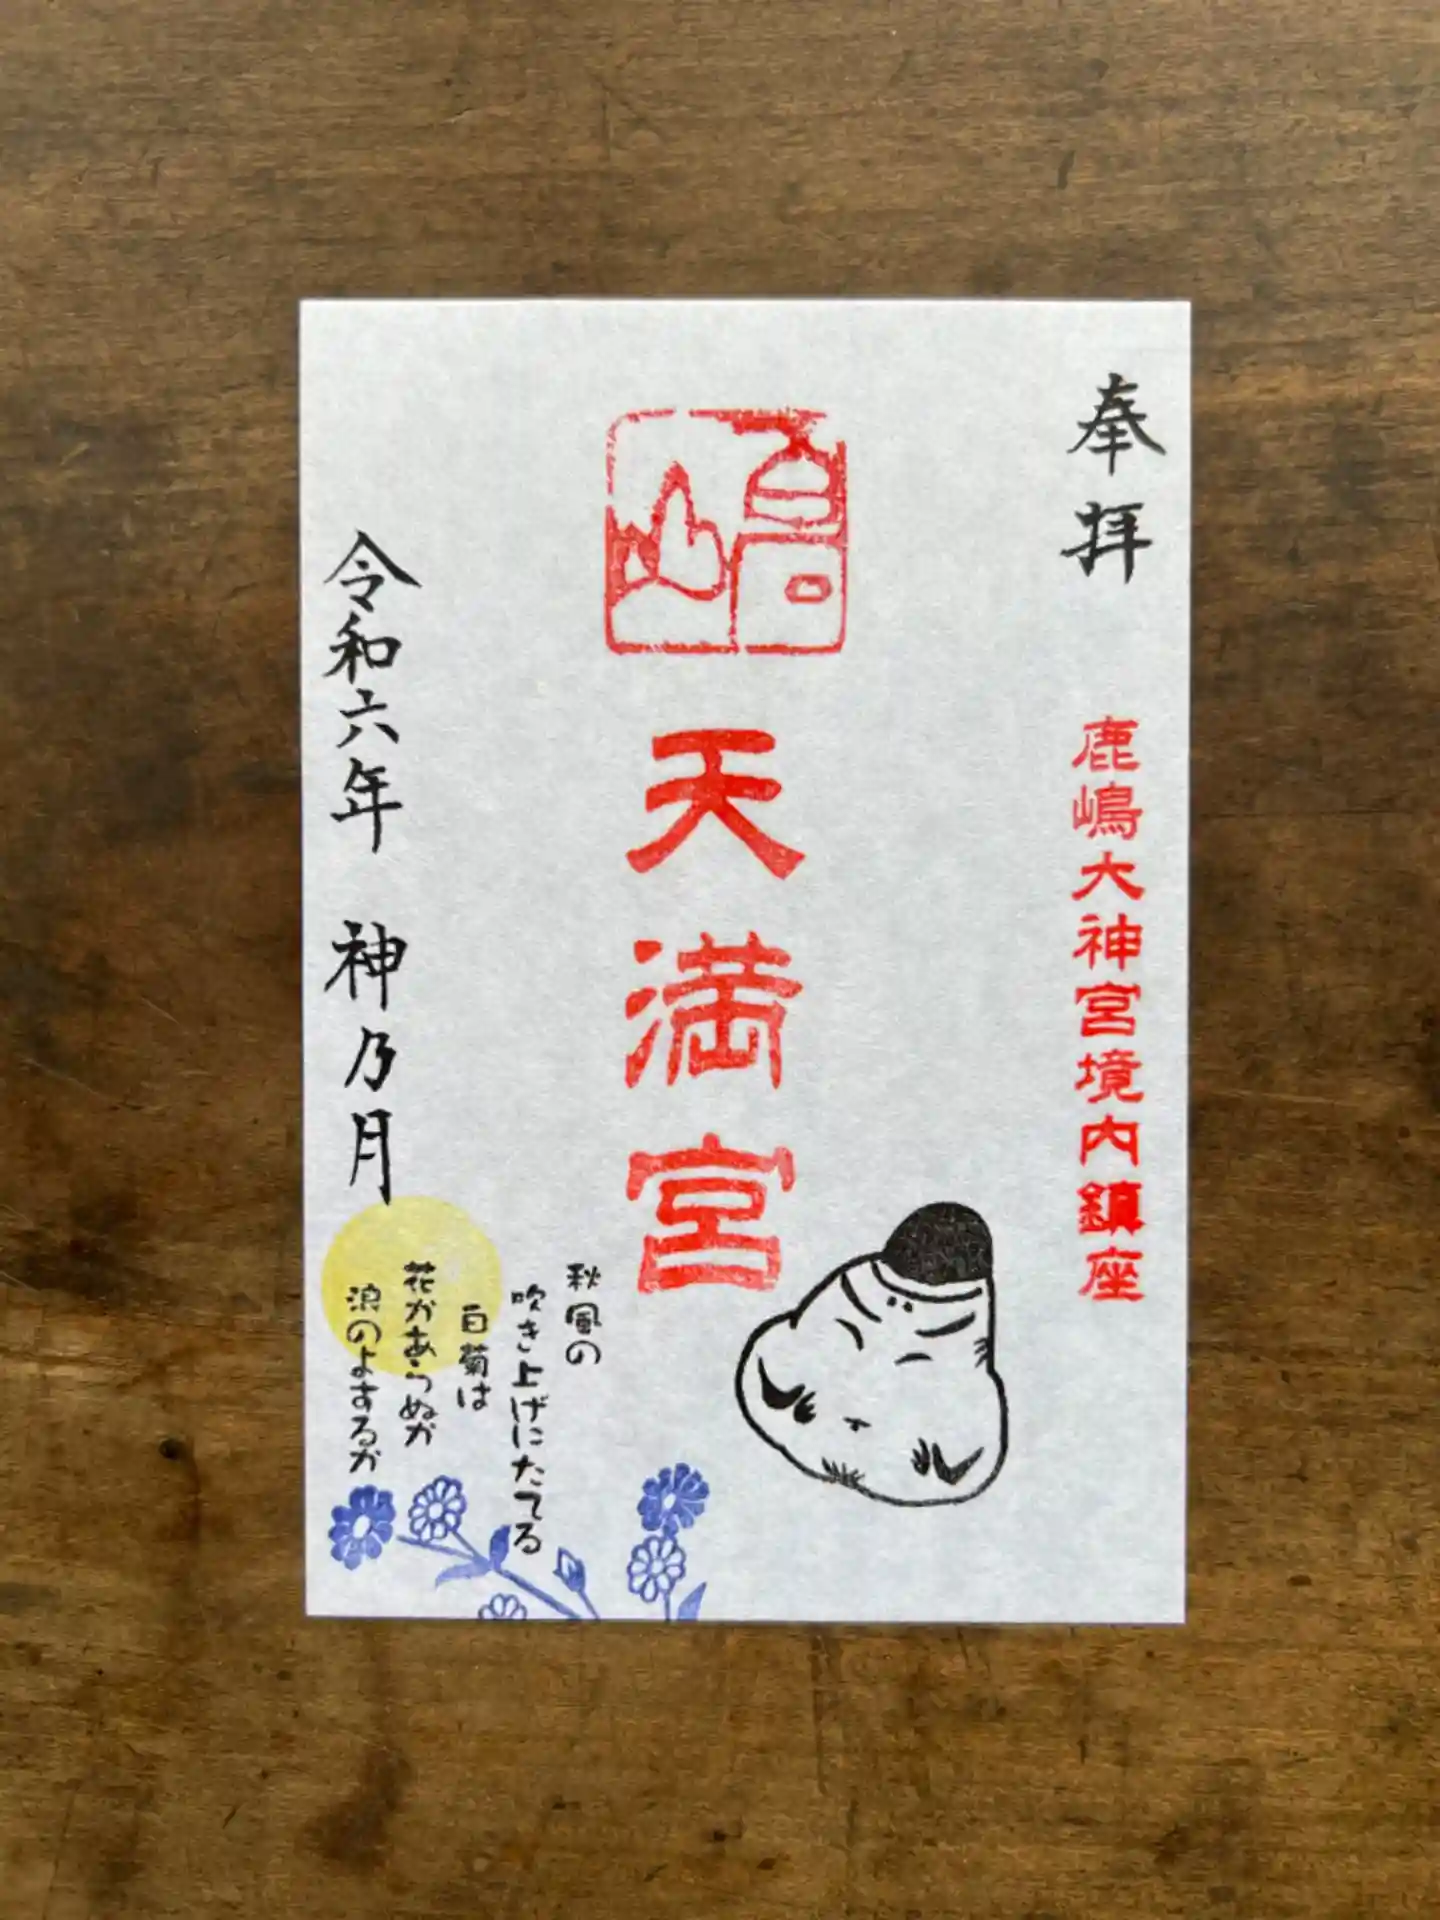 奉拝
鹿嶋大神宮境内鎮座
嶋
天満宮
秋風の
吹き上げにたてる
白菊は
花かあらぬか
浪のよするか
令和六年 神乃月